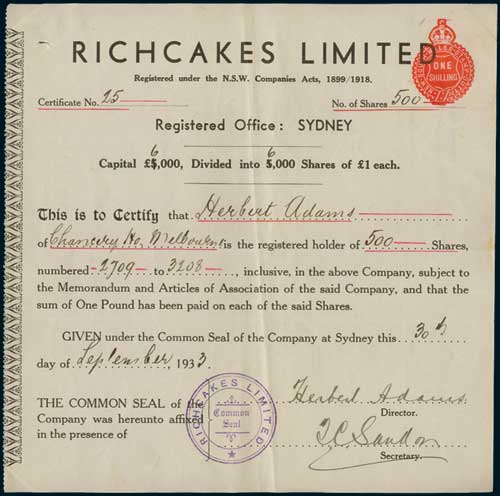 RICHCAKES LIMITED
ONE
SHILLING
Registered under the N.S.W. Companies Acts, 1899/1918.
Certificate No. 25
No. of Shares 500
Registered Office: SYDNEY
6 6
Capital £5,000, Divided into 5,000 Shares of £1 each.
This is to Certify that Herbert Adams
of Chancery Ho, Melbourne is the registered holder of 500 Shares,
numbered 2709 to 3208, inclusive, in the above Company, subject to
the Memorandum and Articles of Association of the said Company, and that the
sum of One Pound has been paid on each of the said Shares.
GIVEN under the Common Seal of the Company at Sydney this 30th
day of September 1933.
THE COMMON SEAL of the
Company was hereunto affixed
in the presence of
RICHCAKES LIMITED
Common
Seal
Herbert Adams
Director.
Secretary.